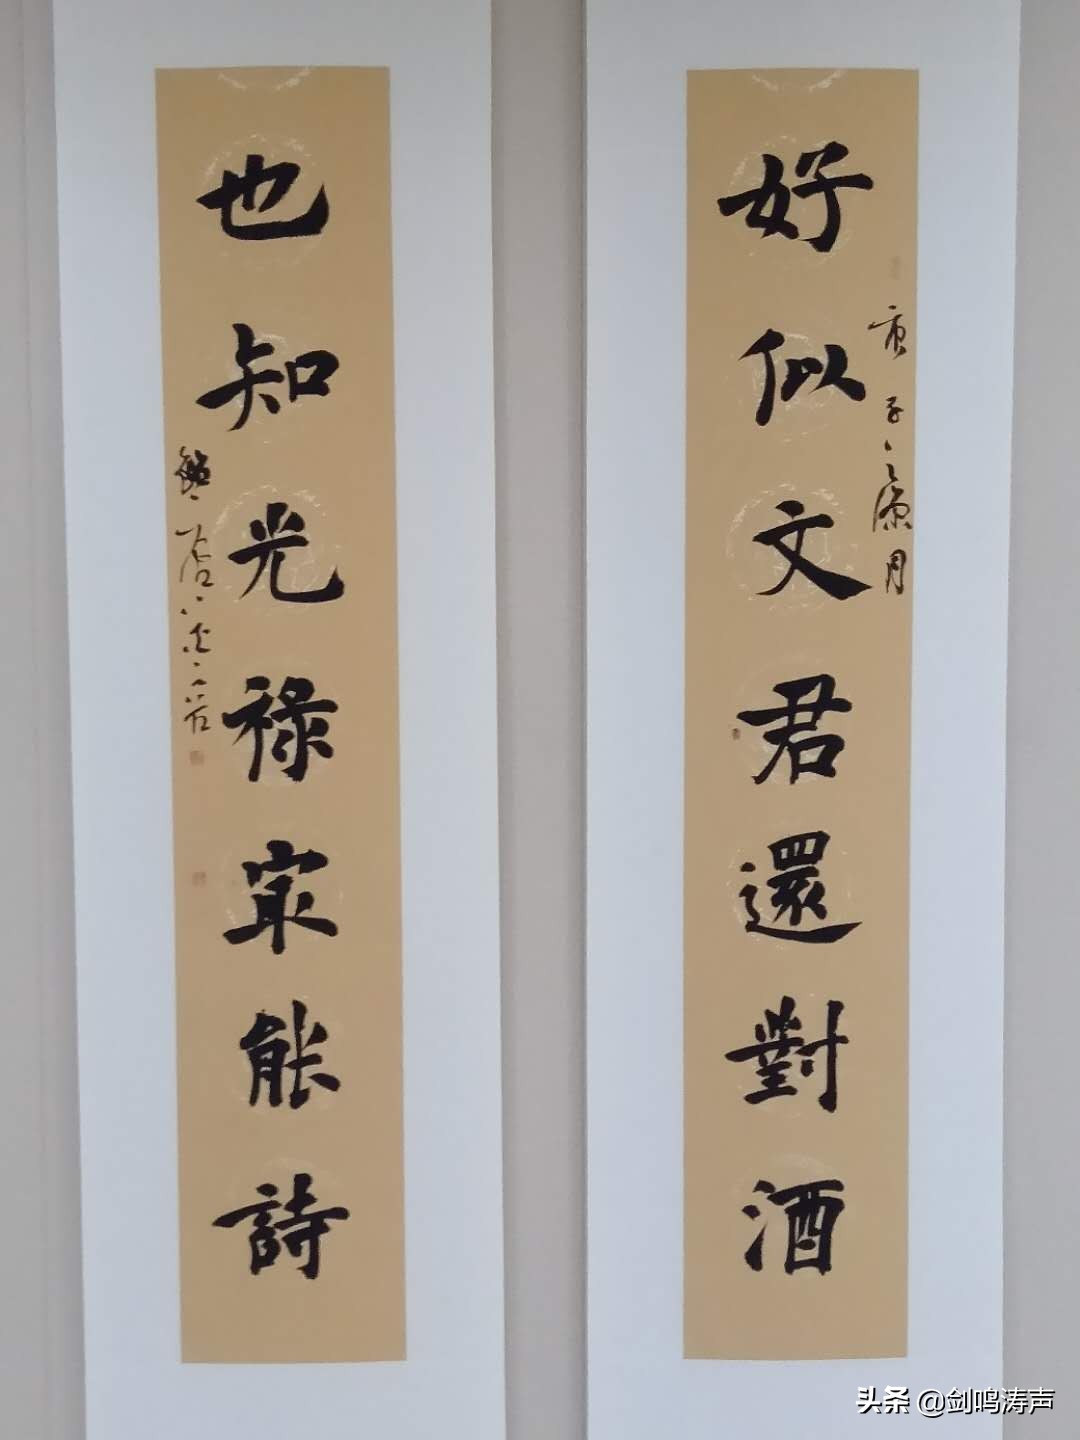 好似文君還對酒
庚子之源月
也知光禄冣能詩
头条 @剑鸣涛声